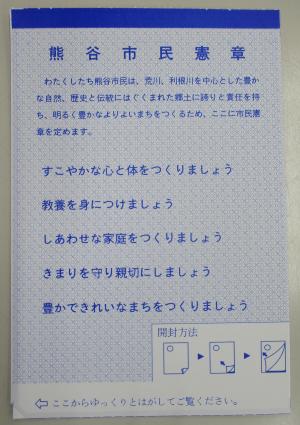 熊谷市民憲章
わたくしたち熊谷市民は、荒川、利根川を中心とした豊か
な自然、歴史と伝統にはぐくまれた郷土に誇りと責任を持
ち、明るく豊かなよりよいまちをつくるため、ここに市民憲
章を定めます。
すこやかな心と体をつくりましょう
教養を身につけましょう
しあわせな家庭をつくりましょう
きまりを守り親切にしましょう
豊かできれいなまちをつくりましょう
開封方法
ここからゆっくりとはがしてご覧ください。